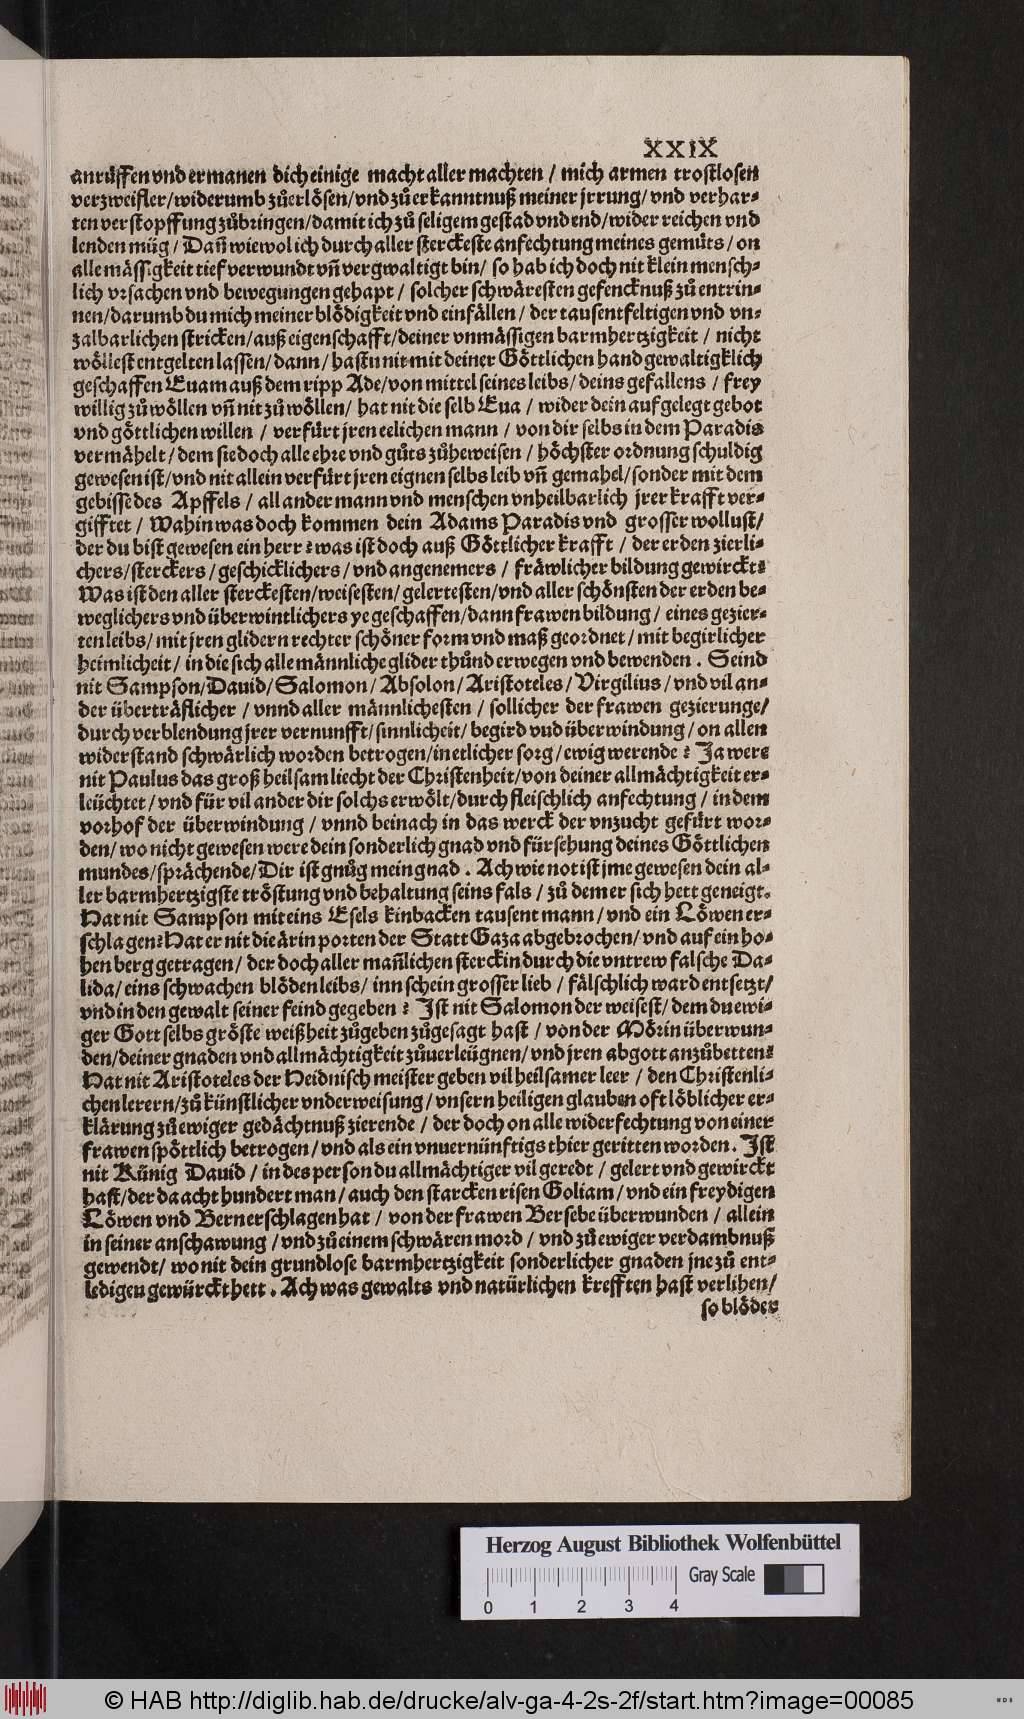 XXIX
anrüffen vnd ermanen dich einige macht aller machten / mich armen trostlosen
verzweifler / widerumb zůerlösen / vnd zů erkanntnuß meiner jrrung / vnd verhar-
ten verstopffung zůbringen / damit ich zů seligem gestad vnd end / wider reichen vnd
lenden müg / Dañ wiewol ich durch aller sterckeste anfechtung meines gemůts / on
alle mässigkeit tief verwundt vñ vergwaltigt bin / so hab ich doch nit klein mensch-
lich vrsachen vnd bewegungen gehapt / solcher schwäresten gefencknuß zů entrin-
nen / darumb du mich meiner blödigkeit vnd einfällen / der tausentfeltigen vnd vn-
zalbarlichen stricken / auß eigenschafft / deiner vnmässigen barmhertzigkeit / nicht
wöllest entgelten lassen / dann / hastu nit mit deiner Göttlichen hand gewaltigklich
geschaffen Euam auß dem ripp Ade / von mittel seines leibs / deins gefallens / frey
willig zů wöllen vñ nit zů wöllen / hat nit die selb Eua / wider dein aufgelegt gebot
vnd göttlichen willen / verfürt jren eelichen mann / von dir selbs in dem Paradis
vermähelt / dem sie doch alle ehre vnd gůts zůbeweisen / höchster ordnung schuldig
gewesen ist / vnd nit allein verfürt jren eignen selbs leib vñ gemahel / sonder mit dem
gebisse des Apffels / all ander mann vnd menschen vnheilbarlich jrer krafft ver-
gifftet / Wahin was doch kommen dein Adams Paradis vnd grosser wollust /
der du bist gewesen ein herr ? was ist doch auß Göttlicher krafft / der erden zierli-
chers / sterckers / geschicklichers / vnd angenemers / fräwlicher bildung gewirckt ?
Was ist den aller sterckesten / weisesten / gelertesten / vnd aller schönsten der erden be-
weglichers vnd überwintlichers ye geschaffen / dann frawen bildung / eines gezier-
ten leibs / mit jren glidern rechter schöner form vnd maß geordnet / mit begirlicher
heimlicheit / in die sich alle männliche glider thůnd erwegen vnd bewenden . Seind
nit Sampson / Dauid / Salomon / Absolon / Aristoteles / Virgilius / vnd vil an-
der überträflicher / vnnd aller männlichesten / sollicher der frawen gezierunge /
durch verblendung jrer vernunfft / sinnlicheit / begird vnd überwindung / on allen
widerstand schwärlich worden betrogen / in etlicher sorg / ewig werende ? Ja were
nit Paulus das groß heilsam liecht der Christenheit / von deiner allmächtigkeit er-
leüchtet / vnd für vil ander dir solchs erwölt / durch fleischlich anfechtung / in dem
vorhof der überwindung / vnnd beinach in das werck der vnzucht gefürt wor-
den / wo nicht gewesen were dein sonderlich gnad vnd fürsehung deines Göttlichen
mundes / sprächende / Dir ist gnůg mein gnad . Ach wie not ist jme gewesen dein al-
ler barmhertzigste tröstung vnd behaltung seins fals / zů dem er sich hett geneigt.
Hat nit Sampson mit eins Esels kinbacken tausent mann / vnd ein Löwen er-
schlagen ? Hat er nit die ärin porten der Statt Gaza abgebrochen / vnd auf ein ho-
hen berg getragen / der doch aller mañlichen sterckin durch die vntrew falsche Da-
lida / eins schwachen blöden leibs / inn schein grosser lieb / fälschlich ward entsetzt /
vnd in den gewalt seiner feind gegeben ? Ist nit Salomon der weisest / dem du ewi-
ger Gott selbs gröste weißheit zůgeben zůgesagt hast / von der Mörin überwun-
den / deiner gnaden vnd allmächtigkeit zůuerleügnen / vnd jren abgott anzůbetten ?
Hat nit Aristoteles der Heidnisch meister geben vil heilsamer leer / den Christenli-
chen lerern / zů künstlicher vnderweisung / vnsern heiligen glauben oft löblicher er-
klärung zů ewiger gedächtnuß zierende / der doch on alle widerfechtung von einer
frawen spöttlich betrogen / vnd als ein vnuernünftigs thier geritten worden . Ist
nit Künig Dauid / in des person du allmächtiger vil geredt / gelert vnd gewirckt
hast / der da acht hundert man / auch den starcken risen Goliam / vnd ein freydigen
Löwen vnd Bern erschlagen hat / von der frawen Bersebe überwunden / allein
in seiner anschawung / vnd zů einem schwären mord / vnd zů ewiger verdambnuß
gewendt / wo nit dein grundlose barmhertzigkeit sonderlicher gnaden jne zů ent-
ledigen gewürckt hett . Ach was gewalts vnd natürlichen krefften hast verlihen /
so blöder
Herzog August Bibliothek Wolfenbüttel
Gray Scale
0 1 2 3 4
© HAB http://diglib.hab.de/drucke/alv-ga-4-2s-2f/start.htm?image=00085